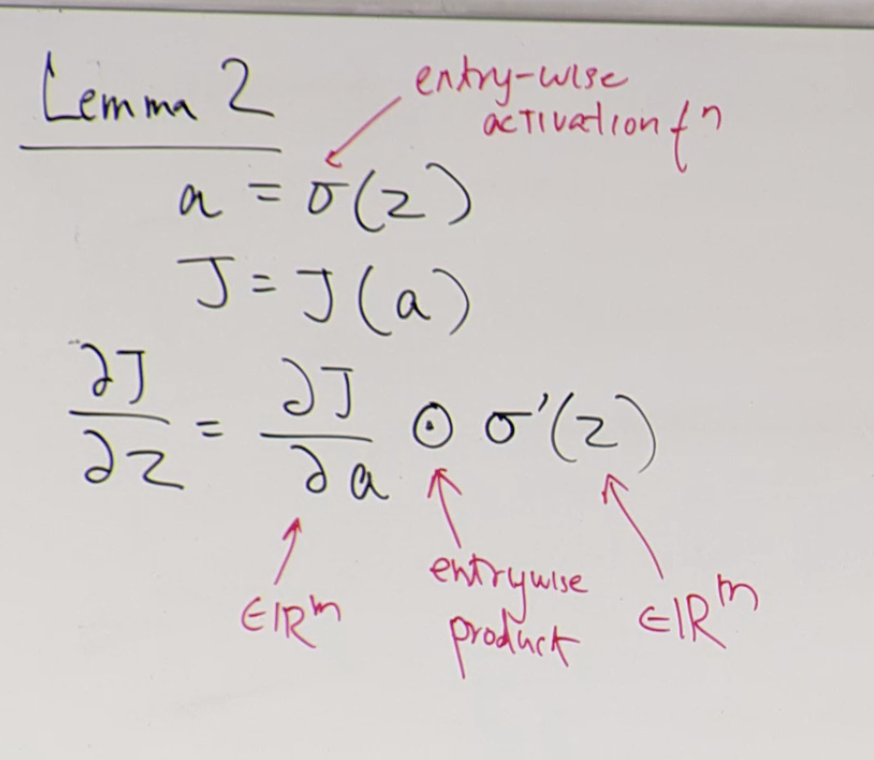 Lemma 2
entry-wise
activation fⁿ
a = σ(z)
J = J(a)
∂J/∂z = ∂J/∂a ⊙ σ′(z)
∈ℝᵐ
entrywise
product
∈ℝᵐ